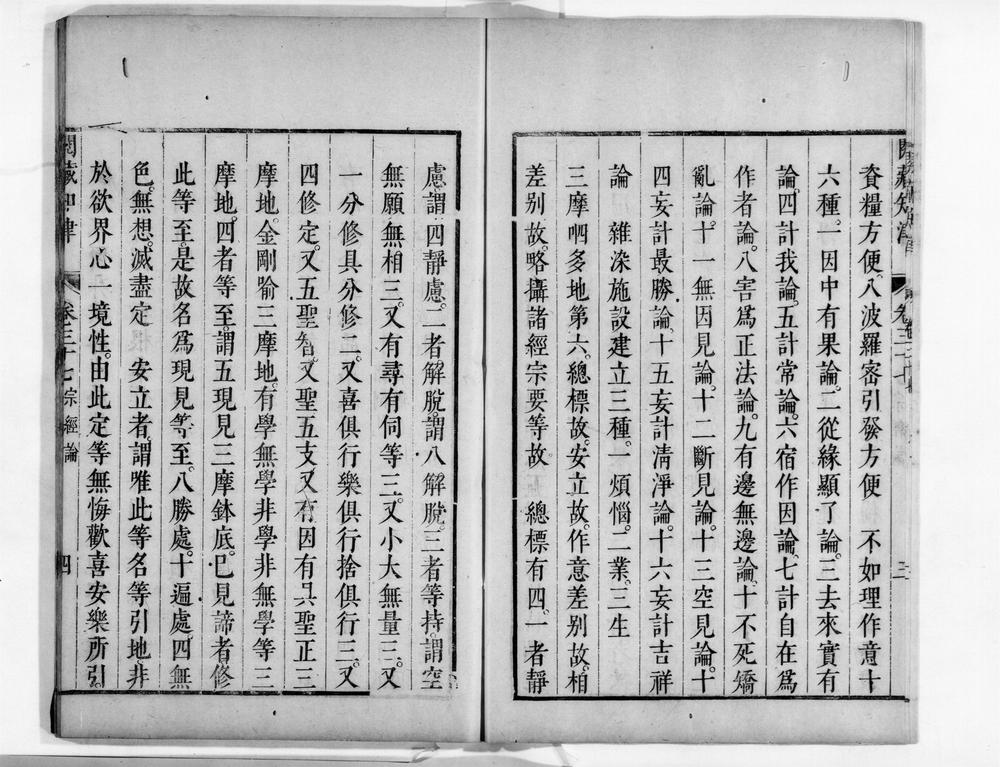 資糧方便。八波羅密引發方便　不如理作意十
六種。一因中有果論。二從緣顯了論。三去來實有
論。四計我論。五計常論。六宿作因論。七計自在爲
作者論。八害爲正法論。九有邊無邊論。十不死矯
亂論。十一無因見論。十二斷見論。十三空見論。十
四妄計最勝論。十五妄計清淨論。十六妄計吉祥
論　雜染施設建立三種。一煩惱。二業。三生
三摩呬多地第六。總標故。安立故。作意差别故。相
差别故。略攝諸經宗要等故　總標有四。一者靜
慮。謂四靜慮。二者解脫。謂八解脫。三者等持。謂空
無願無相三。又有尋有伺等三。又小大無量三。又
一分修具分修二。又喜俱行樂俱行捨俱行三。又
四修定。又五聖智。又聖五支。又有因有具聖正三
摩地。金剛喻三摩地。有學無學非學非無學等三
摩地。四者等至。謂五現見三摩鉢底。已見諦者修
此等至。是故名爲現見等至。八勝處。十遍處。四無
色。無想。滅盡定　安立者。謂唯此等名等引地。非
於欲界心一境性。由此定等無悔歡喜安樂所引。
閱藏知津　卷三十七　宗經論　四